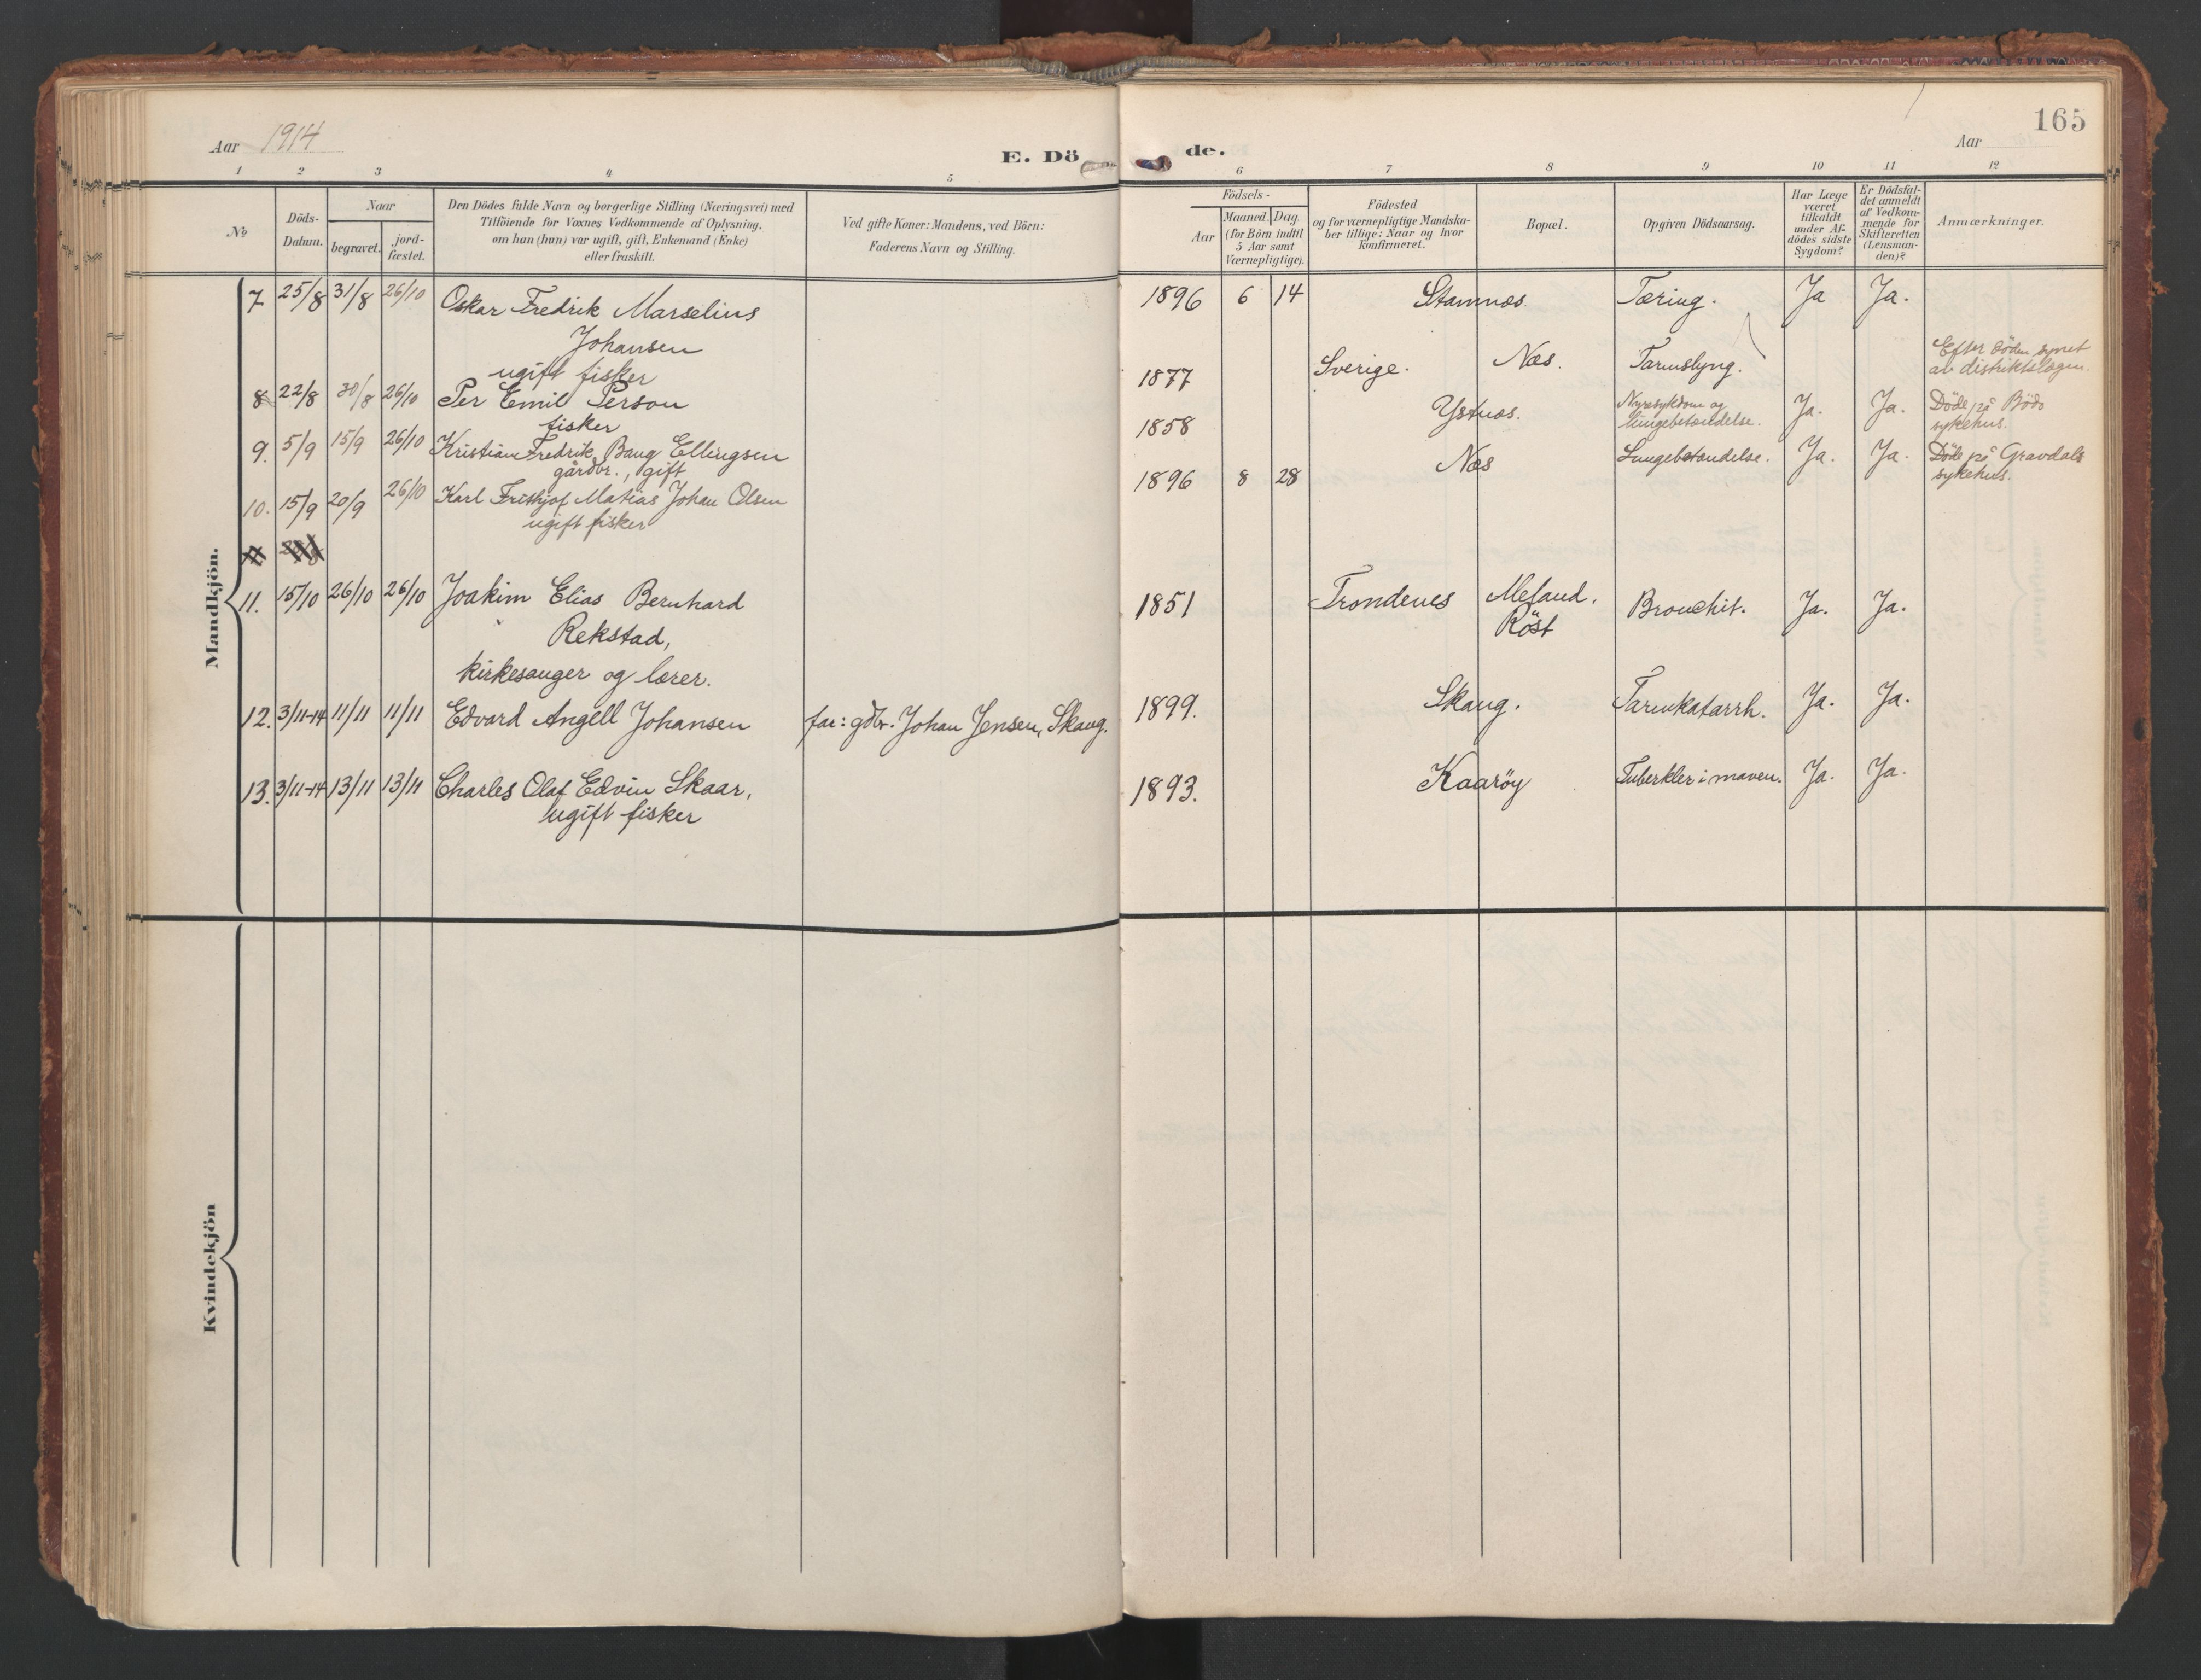 165
Aar 1914
E. Dö de.
Aar
1 2 3 4 5 6 7 8 9 10 11 12
No
Döds-Datum.
Naar
begravet.
jord-fæstet.
Den Dödes fulde Navn og borgerlige Stilling (Næringsvei) med
Tilföiende for Voxnes Vedkommende af Oplysning,
om han (hun) var ugift, gift, Enkemand (Enke)
eller fraskilt.
Ved gifte Koner: Mandens, ved Börn:
Faderens Navn og Stilling.
Födsels-
Aar
Maaned. Dag.
(for Börn indtil
5 Aar samt
Værnepligtige).
Födested
og for værnepligtige Mandska-
ber tillige: Naar og hvor
konfirmeret.
Bopæl.
Opgiven Dödsaarsag.
Har Læge
været
tilkaldt
under Af-
dödes sidste
Sygdom?
Er Dödsfal-
det anmeldt
af Vedkom-
mende for
Skifteretten
(Lensman-
den)?
Anmærkninger.
Mandkjön.
7. 25/8 31/8 26/10 Oskar Fredrik Marselius 1896 6 14 Stamnæs Tæring. Ja Ja.
Johansen
ugift fisker
8 22/8 30/8 26/10 Per Emil Person 1877 Sverige. Næs. Tarmslyng. Efter döden synet
av distriktslægen.
fisker
9. 5/9 15/9 26/10 Kristian Fredrik Bang Ellingsen 1858 Ystnæs. Nyresykdom og
lungebetændelse. Ja. Ja. Döde på Bödö
sykehus.
gårdbr., gift
10. 15/9 20/9 26/10 Karl Frithjof Matias Johan Olsen 1896 8 28 Næs Lungebetændelse. Ja. Ja. Döde på Gravdals
sykehus.
ugift fisker
11
11. 15/10 26/10 26/10 Joakim Elias Bernhard 1851 Trondenes Meland, Bronchit. Ja. Ja.
Röst
Rekstad,
kirkesanger og lærer.
12. 3/11-14 11/11 11/11 Edvard Angell Johansen far: gdbr. Johan Jensen, Skaug. 1899. Skaug. Tarmkatarrh. Ja. Ja.
13. 3/11-14 13/11 13/11 Charles Olaf Edvin Skaar, 1893. Kaaröy Tuberkler i maven. Ja. Ja.
ugift fisker
Kvindekjön